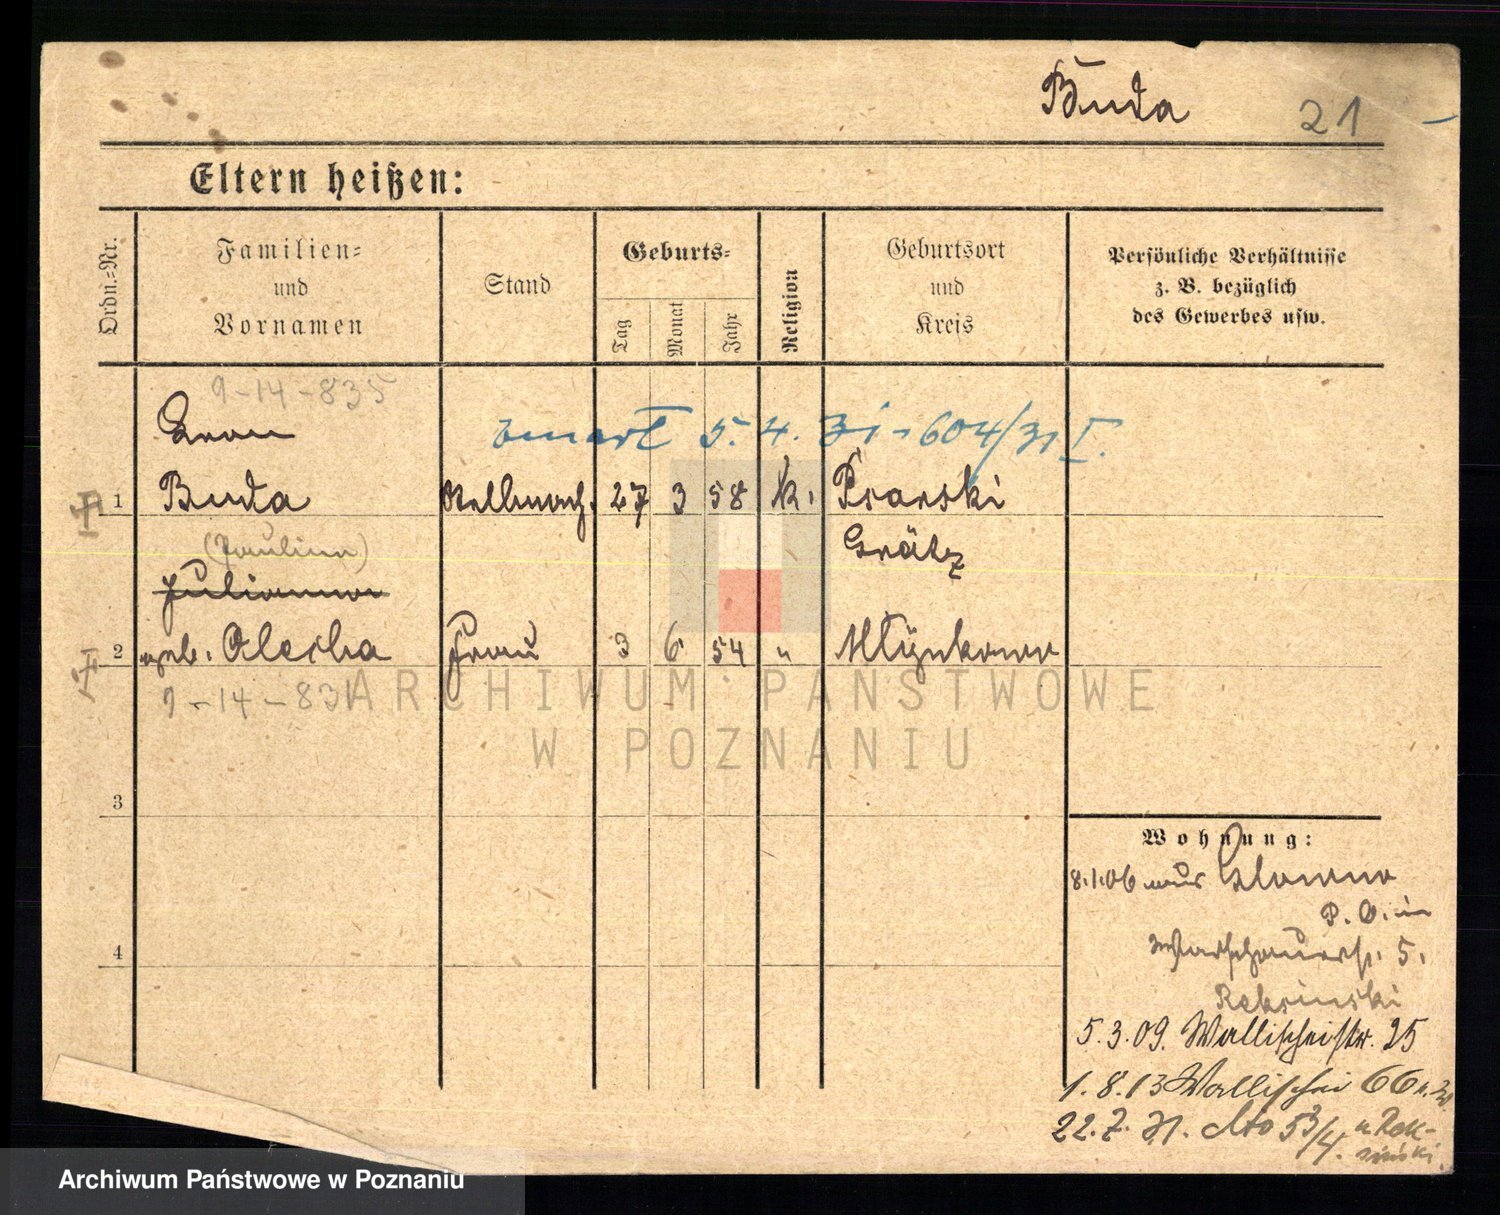 Buda 21
Eltern heißen:
Ordn.-Nr.
Familien-
und
Vornamen
Stand
Geburts-
Tag
Monat
Jahr
Religion
Geburtsort
und
Kreis
Persönliche Verhältnisse
z. B. bezüglich
des Gewerbes usw.
9-14-835
zmarł 5. 4. 31 - 604/31 I.
1 Buda Stellmach. 27 3 58 k. Psarski
Grätz
(Paulina)
Julianna
2 geb. Olecha Frau 3 6 54 " Mlynkowo
9-14-831
ARCHIWUM PAŃSTWOWE
W POZNANIU
3
4
Wohnung:
8.1.06 aus Glowno
P. O. in
Warschauerstr. 5.
Reksinski
5.3.09. Wallischeistr. 25
1.8.13 Wallischei 66
22.7.31. dto 53/4. u Rek-
sinski
Archiwum Państwowe w Poznaniu